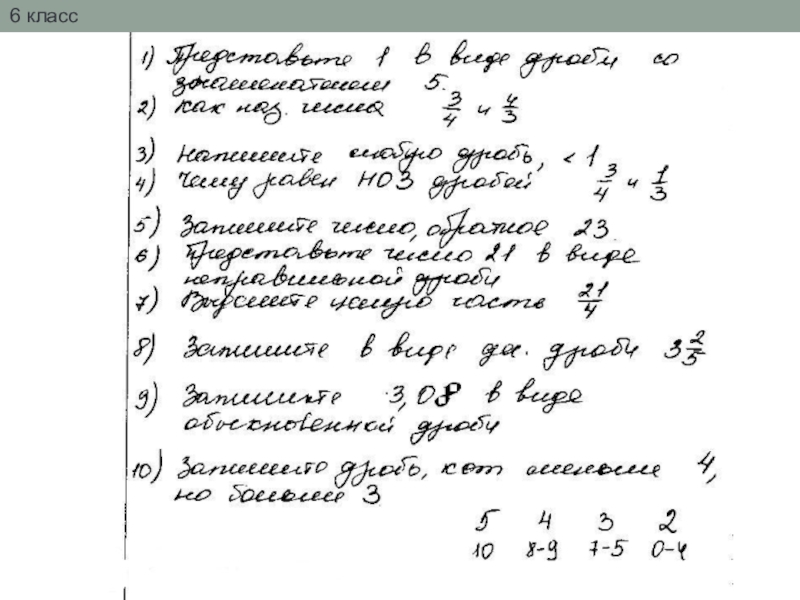 6 класс
1) Представьте 1 в виде дроби со
знаменателем 5.
2) Как наз. числа 3/4 и 4/3
3) Напишите любую дробь, < 1
4) Чему равен НОЗ дробей 3/4 и 1/3
5) Запишите число, обратное 23
6) Представьте число 21 в виде
неправильной дроби
7) Выделите целую часть 21/4
8) Запишите в виде дес. дроби 3 2/5
9) Запишите 3,08 в виде
обыкновенной дроби
10) Запишите дробь, кот меньше 4,
но больше 3
5 4 3 2
10 8-9 7-5 0-4